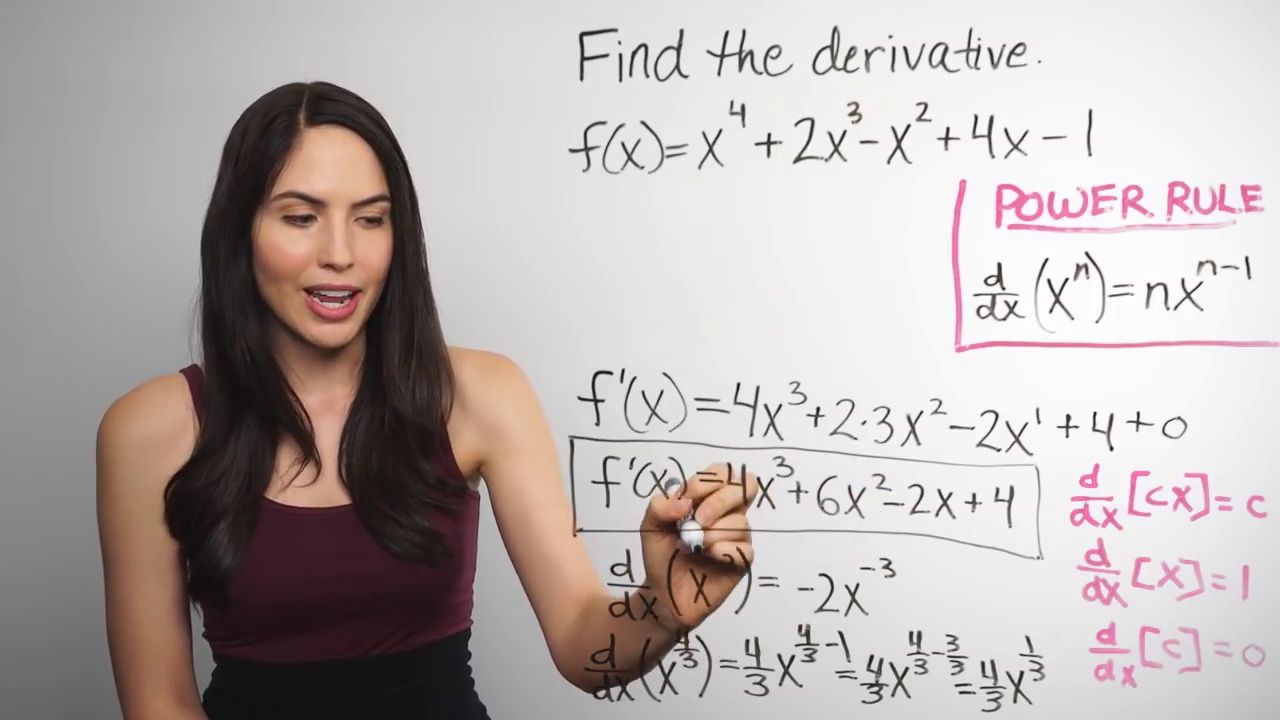 Find the derivative.
f(x)=x⁴+2x³-x²+4x-1
POWER RULE
d/dx(xⁿ)=nxⁿ⁻¹
f'(x)=4x³+2·3x²-2x¹+4+0
f'(x)=4x³+6x²-2x+4
d/dx[cx]=c
d/dx[x]=1
d/dx[c]=0
d/dx(x )= -2x⁻³
d/dx(x^4/3)=4/3x^4/3-1=4/3x^4/3-3/3=4/3x^1/3